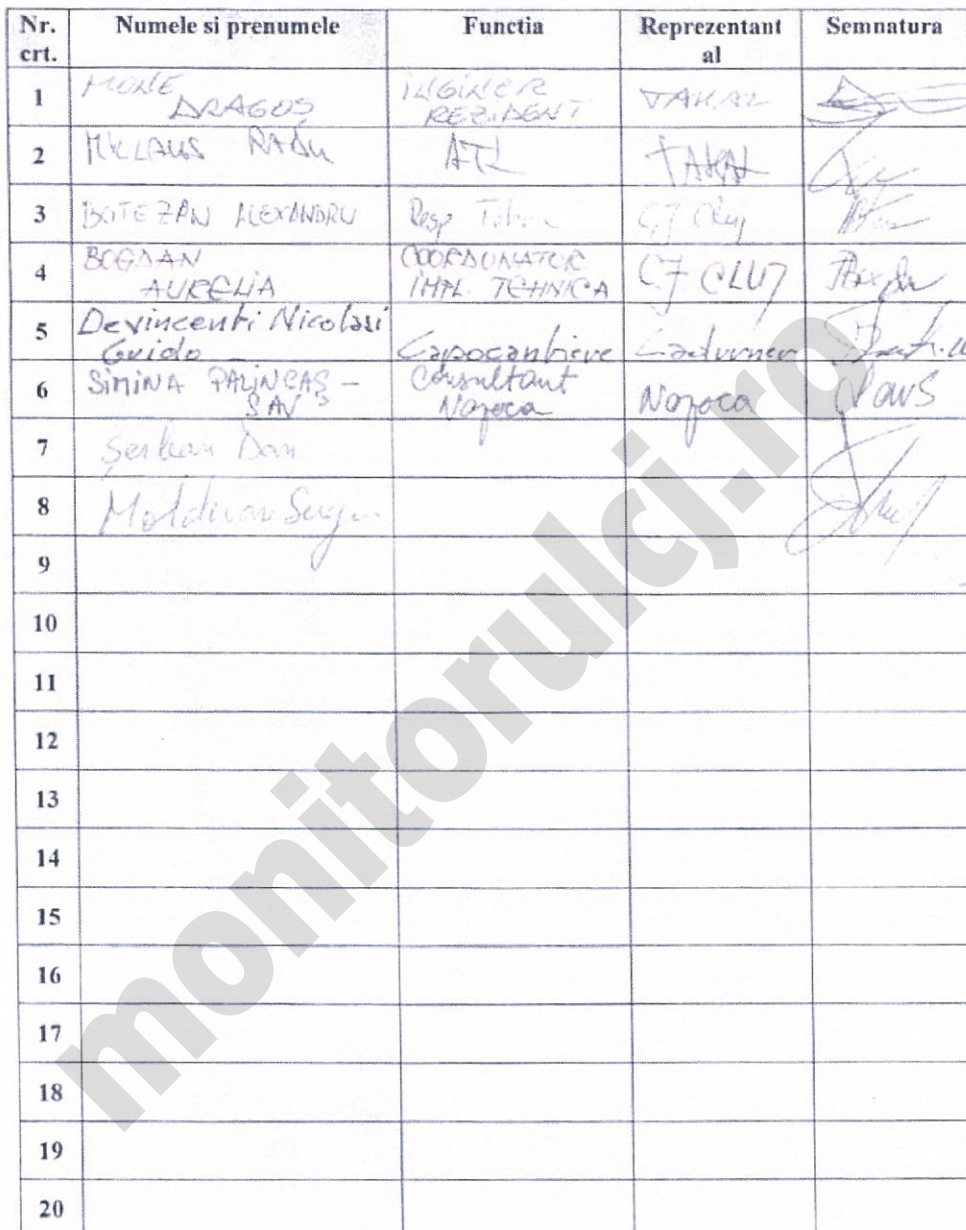 Nr. crt. Numele si prenumele Functia Reprezentant al Semnatura
1 MONE DRAGOȘ INGINER REZIDENT TAKAZ
2 RADU ATL
3 BOTEZAN ALEXANDRU Resp CJ Cluj
4 BOGDAN AURELIA COORDONATOR IMPL. TEHNICA CJ CLUJ
5 Devincenti Nicolasi Guido Capocantiere
6 SIMINA PALINCAȘ - SAV Consultant Napoca Napoca
7 Șerban Dan
8 Moldovan
9
10
11
12
13
14
15
16
17
18
19
20
monitorulcj.ro